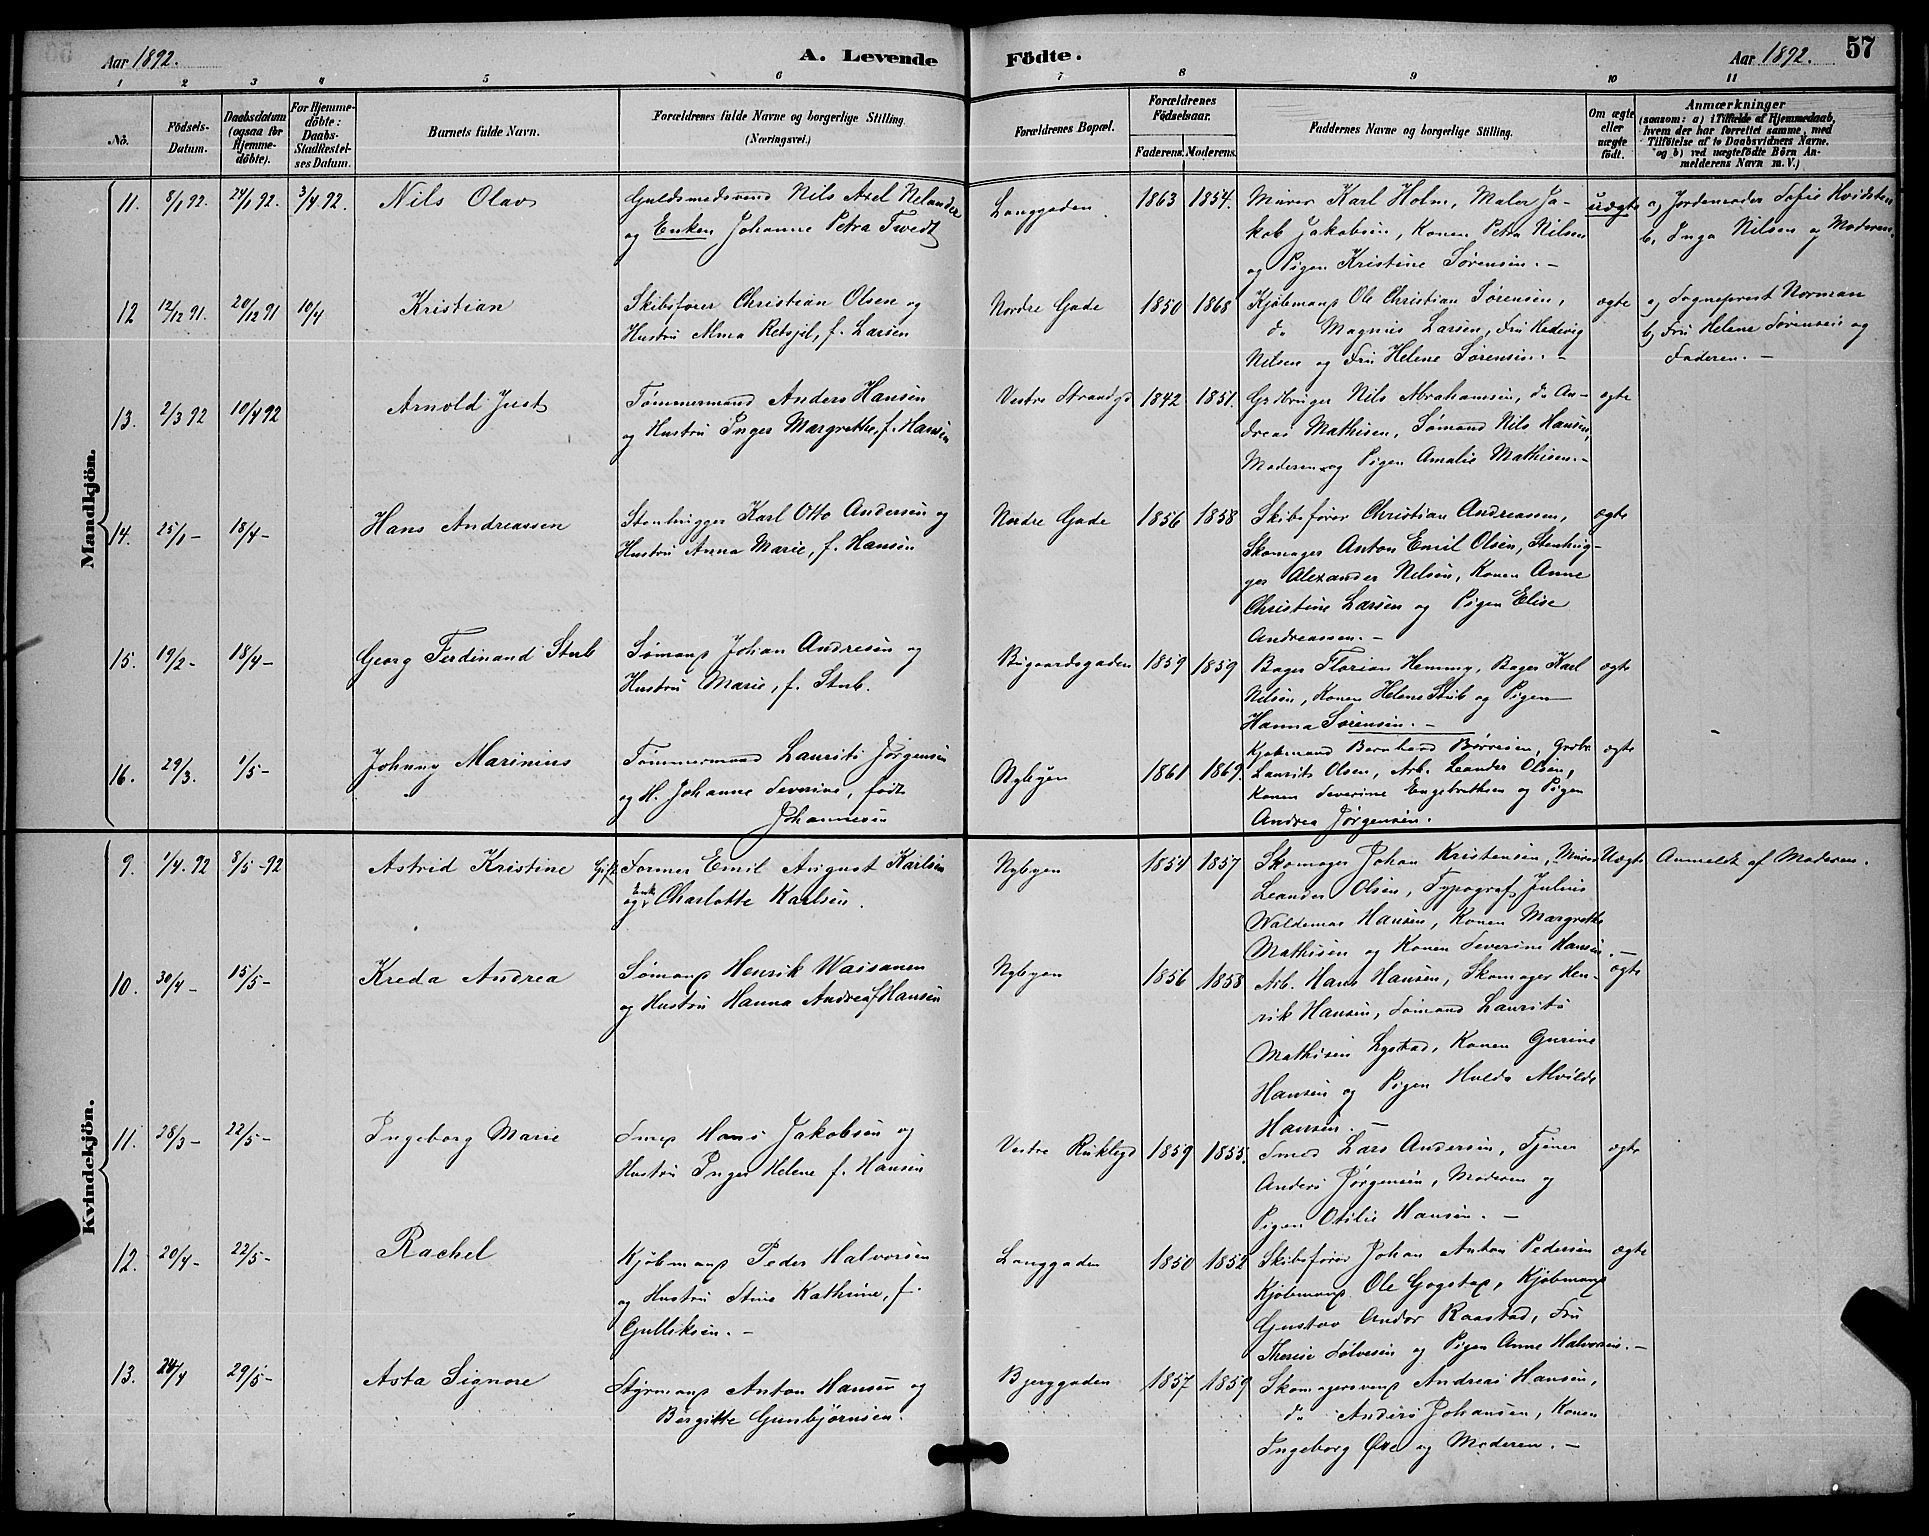 Aar 1892.
A. Levende
Födte.
Aar 1892.
57
1 2 3 4 5 6 7 8 9 10 11
No.
Födsels-
Datum.
Daabsdatum
(ogsaa for
Hjemme-
döbte).
For Hjemme-
döbte:
Daabs-
Stadfestel-
ses Datum.
Barnets fulde Navn.
Forældrenes fulde Navne og borgerlige Stilling.
(Næringsvei.)
Forældrenes Bopæl.
Forældrenes
Födselsaar.
Faderens. Moderens.
Faddernes Navne og borgerlige Stilling.
Om ægte
eller
uægte
født.
Anmærkninger
(saasom: a) i Tilfælde af Hjemmedaab,
hvem der har forrettet samme, med
Tilföielse af to Daabsvidners Navne.
og b) ved uægtefödte Börn An-
melderens Navn m. V.)
Mandkjön.
11. 8/1 92. 24/1 92. 3/4 92. Nils Olav
Guldsmedsvend Nils Axel Nelander
og Enken Johanne Petra Twedt
Langgaden. 1863 1854.
Murer Karl Holm, Maler Ja-
kob Jakobsen, Konen Petra Nilsen
og Pigen Kristine Sørensen. -
uægte
a) Jordemoder Sofie Hvidsten
b, Inga Nilsen og Moderen.
12 12/12 91. 20/12 91 10/4 Kristian
Skibsfører Christian Olsen og
Hustru Alma Retsjel, f. Larsen
Nordre Gade 1850 1868
Kjøbmand Ole Christian Sørensen,
do Magnus Larsen, Fru Hedevig
Nilsen og Fru Helene Sørensen. -
ægte
a) Sogneprest Norman
b) Fru Helene Sørensen og
Faderen. -
13. 2/3 92 10/4 92 Arnold Just
Tømmermand Anders Hansen
og Hustru Inger Margrethe, f. Hansen
Vestre Strandgd 1842 1851.
Grdbruger Nils Abrahamsen, do An-
dreas Mathisen, Sømand Nils Hansen,
Moderen og Pigen Amalie Mathisen. -
ægte
14. 25/1 - 18/4 - Hans Andreassen
Stenhugger Karl Otto Andersen og
Hustru Anna Marie, f. Hansen
Nordre Gade 1856 1858
Skibsfører Christian Andreassen,
Skomager Anton Emil Olsen, Stenhug-
ger Alexander Nilsen, Konen Anne
Christine Larsen og Pigen Elise
Andreassen. -
ægte
15. 19/2 - 18/4 - Georg Ferdinand Stub
Sømand Johan Andresen og
Hustru Marie, f. Stub.
Bugaardsgaden 1859 1859
Bager Florian Hemmy, Bager Karl
Nilsen, Konen Helene Stub og Pigen
Hanna Sørensen. -
ægte
16. 29/3. 1/5 - Johnny Marinius
Tømmermand Laurits Jørgensen
og H. Johanne Severine, født
Johannesen
Nybyen 1861 1869.
Kjøbmand Bernhard Børresen, Grdbr.
Laurits Olsen, Arb. Leander Olsen,
Konen Severine Engebrethsen og Pigen
Andrea Jørgensen.
ægte
Kvindekjön.
9. 1/4. 92 8/5 - 92 Astrid Kristine
Gift Former Emil August Karlsen
og Enk Charlotte Karlsen.
Nybyen 1854 1857
Skomager Johan Kristensen, Murer
Leander Olsen, Typograf Julius
Waldemar Hansen, Konen Margrethe
Mathisen og Konen Severine Hansen. -
Uægte
Anmeldt af Moderen.
10. 30/4 - 15/5 - Kreda Andrea
Sømand Henrik Waisanen
og Hustru Hanna Andrea f. Hansen
Nybyen 1856 1858
Arb. Hans Hansen, Skomager Hen-
rik Hansen, Sømand Laurits
Mathisen Lystad, Konen Gurine
Hansen og Pigen Hulda Alvilde
Hansen. -
ægte
11. 28/3 - 22/5 - Ingeborg Marie
Smed Hans Jakobsen og
Hustru Inger Helene f. Hansen
Vestre 1859 1855.
Smed Lars Andersen, Tjener
Anders Jørgensen, Moderen og
Pigen Otilie Hansen. -
ægte
12. 20/4 - 22/5 - Rachel
Kjøbmand Peder Halvorsen
og Hustru Stine Kathrine, f.
Gulliksen. -
Langgaden 1850 1852
Skibsfører Johan Anton Pedersen
Kjøbmand Ole Gogstad, Kjøbmand
Gustav Andor Raastad, Fru
Therese Sølvesen og Pigen Anne Halvorsen. -
ægte
13. 24/4 29/5 - Asta Signore
Styrmand Anton Hansen og
Birgitte Gunbjørnsen.
Bjerggaden 1857 1859
Skomagersvend Andreas Hansen,
do Anders Johansen, Konen
Ingeborg Øve og Moderen. -